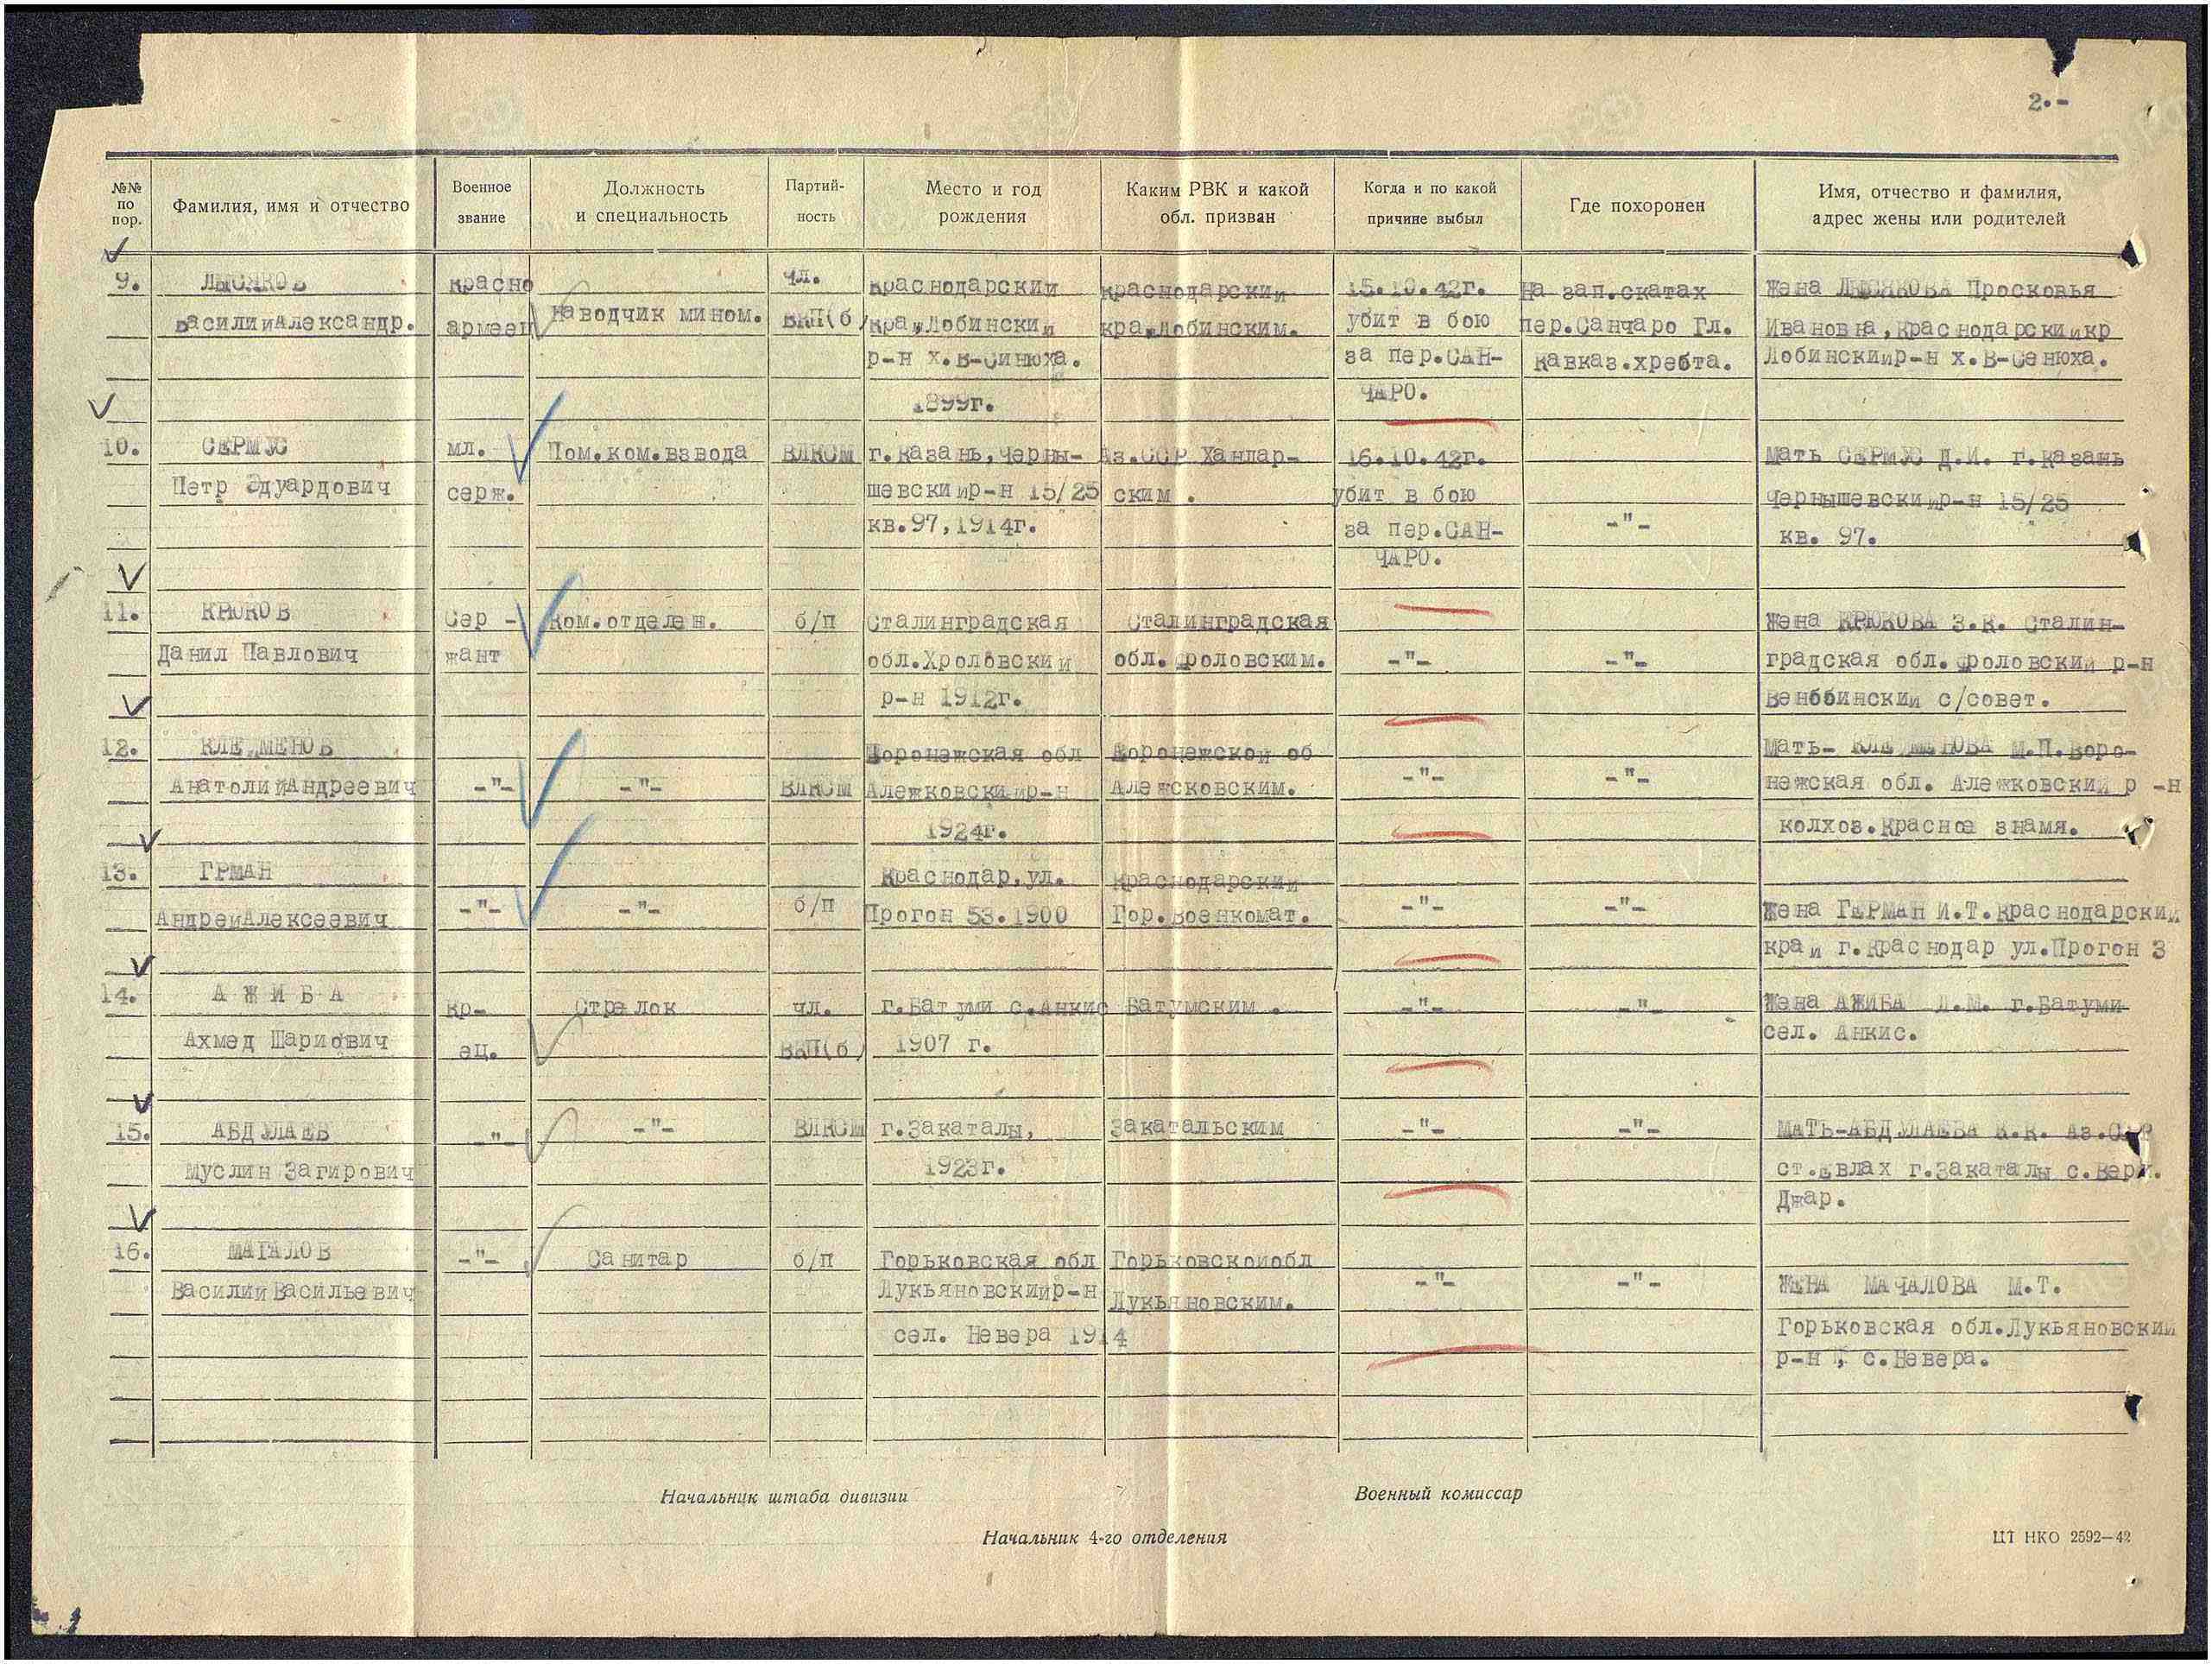 2.-
№№ по пор.
Фамилия, имя и отчество
Военное звание
Должность и специальность
Партий-ность
Место и год рождения
Каким РВК и какой обл. призван
Когда и по какой причине выбыл
Где похоронен
Имя, отчество и фамилия, адрес жены или родителей
9. ЛЫСЯКОВ красно чл. Краснодарский Краснодарский 15.10.42г. На зап.скатах Жена ЛЫСЯКОВА Просковья
ВасилийАлександр. армеец Наводчик мином. ВКП(б) край,Лобинский край,Лобинским. убит в бою пер.Санчаро Гл. Ивановна,Краснодарскийкр
р-н х.В-Синюха. за пер.САН- Кавказ.хребта. Лобинскийр-н х.В-Сенюха.
1899г. ЧАРО.
10. СЕРМУС мл. Пом.ком.взвода ВЛКСМ г.Казань,Черны- Аз.ССР Ханлар- 16.10.42г. Мать СЕРМУС Д.И. г.Казань
Петр Эдуардович серж. шевскийр-н 15/25 ским. убит в бою Чернышевскийр-н 15/25
кв.97,1914г. за пер.САН- -"- кв. 97.
ЧАРО.
11. КРЮКОВ Сер - Ком.отделен. б/п Сталинградская Сталинградская Жена КРЮКОВА З.К. Сталин-
Данил Павлович жант обл.Хроловский обл.Фроловским. -"- -"- градская обл.Фроловский р-н
р-н 1912г. с/совет.
12. КЛЕЙМЕНОВ Воронежская обл Воронежской об Мать- КЛЕЙМЕНОВА М.П.Воро-
АнатолийАндреевич -"- -"- ВЛКСМ Алешковскийр-н -"- -"- нежская обл. Алешковский р-н
1924г. колхоз.Красное знамя.
13. ГРМАН Краснодар,ул. Краснодарский
АндрейАлексеевич -"- -"- б/п Прогон 53.1900 Гор.Военкомат. -"- -"- Жена ГЕРМАН И.Т.Краснодарский
край г.Краснодар ул.Прогон 3
14. АЖИБА кр- Стрелок чл. г.Батуми с.Анкис Батумским . -"- -"- Жена АЖИБА г.Батуми
Ахмед ец. ВКП(б) 1907 г. сел. Анкис.
15. АБДУЛАЕВ -"- -"- ВЛКСМ г.Закаталы, Закатальским -"- -"- МАТЬ-АБДУЛАЕВА К.К. Аз.ССР
Муслин Загирович 1923г. ст.Евлах г.Закаталы с.Верх.
Джар.
16. МАГАЛОВ -"- Санитар б/п Горьковская обл Горьковскойобл
ВасилийВасильевич Лукьяновскийр-н Лукьяновским. -"- -"- ЖЕНА МАЧАЛОВА М.Т.
сел. Невера 1914 Горьковская обл.Лукьяновский
р-н , с.Невера.
Начальник штаба дивизии
Военный комиссар
Начальник 4-го отделения
ЦТ НКО 2592—42